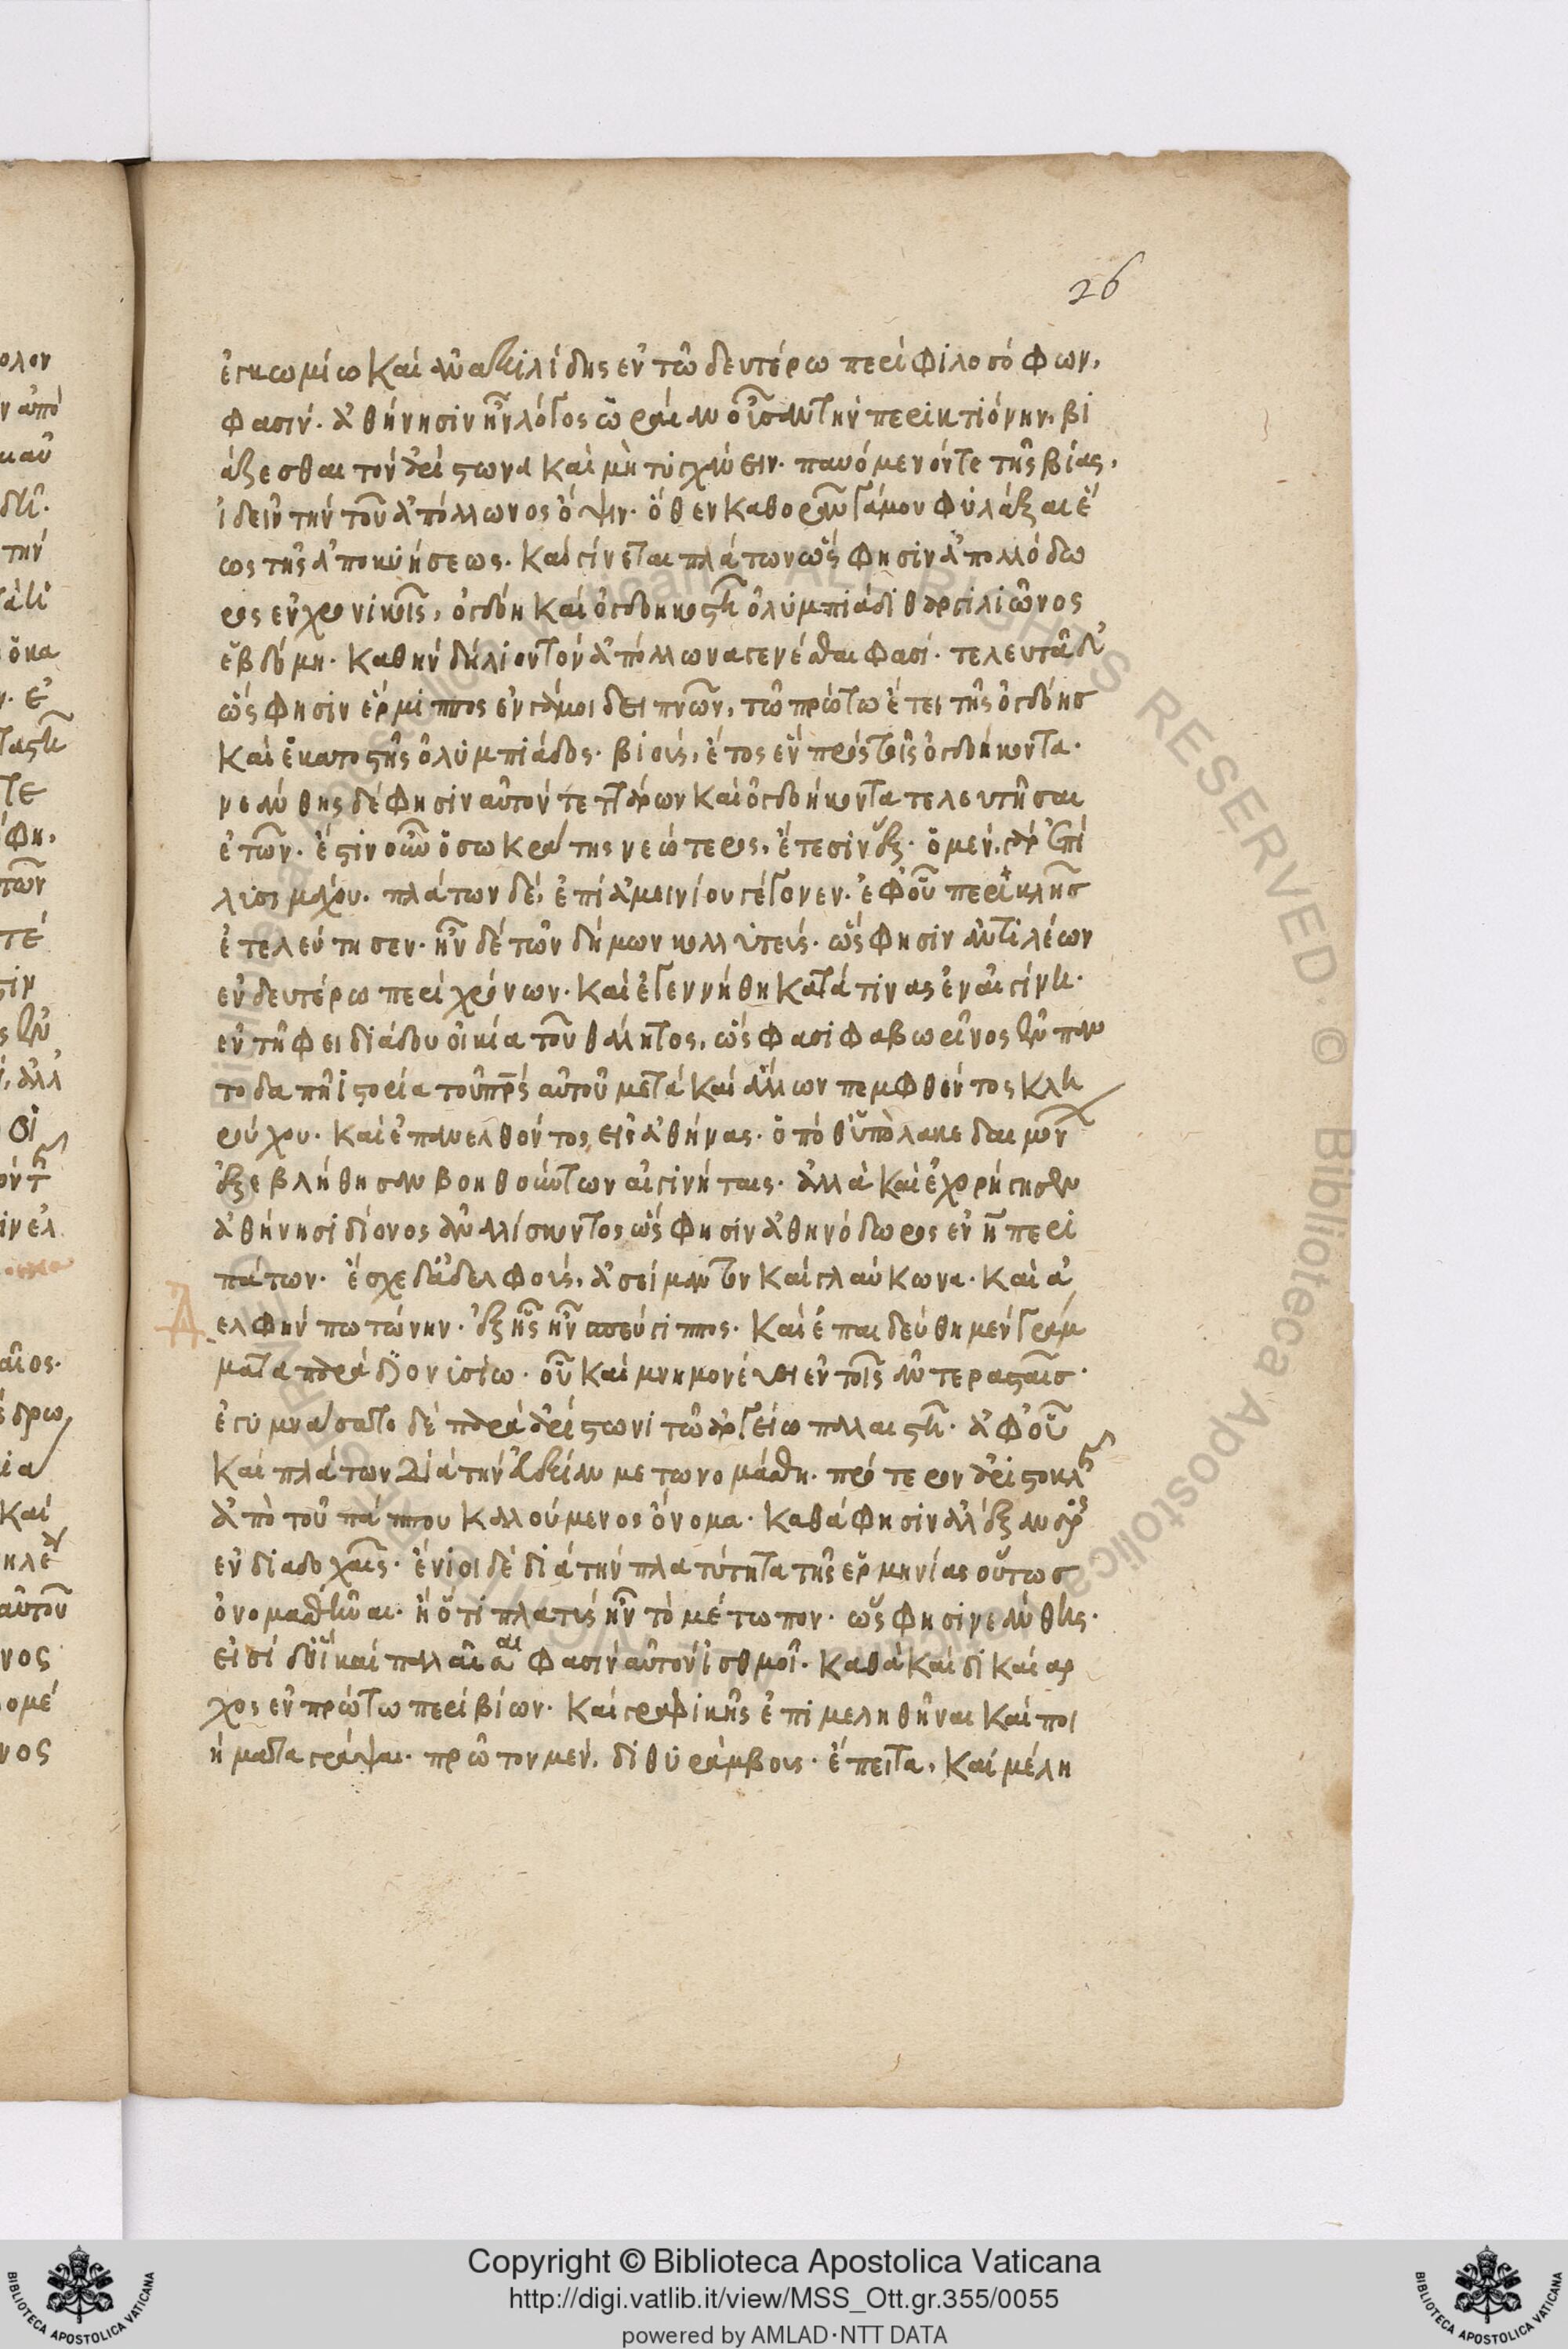 26
ἐγκωμίω καὶ ἀναξιλίδης ἐν τῶ δευτέρω περὶ φιλοσόφων,
φασίν. ἀθήνησιν ἦν λόγος ὡραίαν οὖσαν τὴν περικτιόνην, βι
άζεσθαι τὸν ἀρίστωνα καὶ μὴ τυγχάνειν. παυόμενόν τε τῆς βίας,
ἰδεῖν τὴν τοῦ ἀπόλλωνος ὄψιν. ὅθεν καθαρὰν γάμου φυλάξαι ἕ
ως τῆς ἀποκυήσεως. καὶ γίνεται πλάτων ὥς φησιν ἀπολλόδω
ρος ἐν χρονικοῖς, ὀγδόη καὶ ὀγδοηκοστῆ ὀλυμπιάδι θαργιλιῶνος
ἑβδόμη. καθ' ἣν δήλιοι τὸν ἀπόλλωνα γενέσθαι φασί. τελευτᾶ δ'
ὥς φησιν ἕρμιππος ἐν γάμοι δειπνῶν, τῶ πρώτω ἔτει τῆς ὀγδόης
καὶ ἑκατοστῆς ὀλυμπιάδος. βιοὺς, ἔτος ἓν πρὸς τοῖς ὀγδοήκοντα.
νεάνθης δέ φησιν αὐτὸν τεττάρων καὶ ὀγδοήκοντα τελευτῆσαι
ἐτῶν. ἔστιν οὖν ὃ σωκράτης νεώτερος, ἔτεσιν ἕξ. ὁ μὲν γὰρ ἐπὶ
λυσιμάχου. πλάτων δὲ, ἐπὶ ἀμεινίου γέγονεν. ἐφ' οὗ περικλῆς
ἐτελεύτησεν. ἦν δὲ τῶν δήμων κολλυτεύς. ὥς φησιν ἀντιλέων
ἐν δευτέρω περὶ χρόνων. καὶ ἐγεννήθη κατά τινας ἐν αἰγίνη.
ἐν τῆ φειδιάδου οἰκία τοῦ θάλητος, ὥς φασι φαβωρῖνος ἐν παν
τοδαπῆ ἱστορία τοῦ πρὸς αὐτοῦ μετὰ καὶ ἄλλων πεμφθέντος κλη
ρούχου. καὶ ἐπανελθόντος εἰς ἀθήνας. ὁπόθ' ὑπὸ λακεδαιμον
ἐξεβλήθησαν βοηθούντων αἰγινήταις. ἀλλὰ καὶ ἐχορήγησεν
ἀθήνησι δίονος ἀναλίσκοντος ὥς φησιν ἀθηνόδωρος ἐν η περι
πάτων. ἔσχε δ' ἀδελφοὺς, ἀδείμαντον καὶ γλαύκωνα. καὶ ἀ
ελφὴν πωτώνην. ἐξ ἧς ἦν σπεύσιππος. καὶ ἐπαιδεύθη μὲν γράμ
ματα παρὰ διονυσίω. οὗ καὶ μνημονεύει ἐν τοῖς ἀντερασταῖς.
ἐγυμνάσατο δὲ παρὰ ἀρίστωνι τῶ ἀργείω παλαιστῆ. ἀφ' οὗ
καὶ πλάτων διὰ τὴν εὐεξίαν μετωνομάσθη. πρότερον ἀριστοκλῆς
ἀπὸ τοῦ πάππου καλούμενος ὄνομα. καθά φησιν ἀλέξανδρος
ἐν διαδοχαῖς. ἔνιοι δὲ διὰ τὴν πλατύτητα τῆς ἑρμηνίας οὕτως
ὀνομασθῆναι. ἢ ὅτι πλατὺς ἦν τὸ μέτωπον. ὥς φησι νεάνθης.
εἰσὶ δ' οἳ καὶ παλαῖσαι φασὶν αὐτὸν ἰσθμοῖ. καθὰ καὶ δικαίαρ
χος ἐν πρώτω περὶ βίων. καὶ γραφικῆς ἐπιμεληθῆναι καὶ ποι
ήματα γράψαι. πρῶτον μὲν, διθυράμβους. ἔπειτα, καὶ μέλη
Copyright © Biblioteca Apostolica Vaticana
http://digi.vatlib.it/view/MSS_Ott.gr.355/0055
powered by AMLAD·NTT DATA